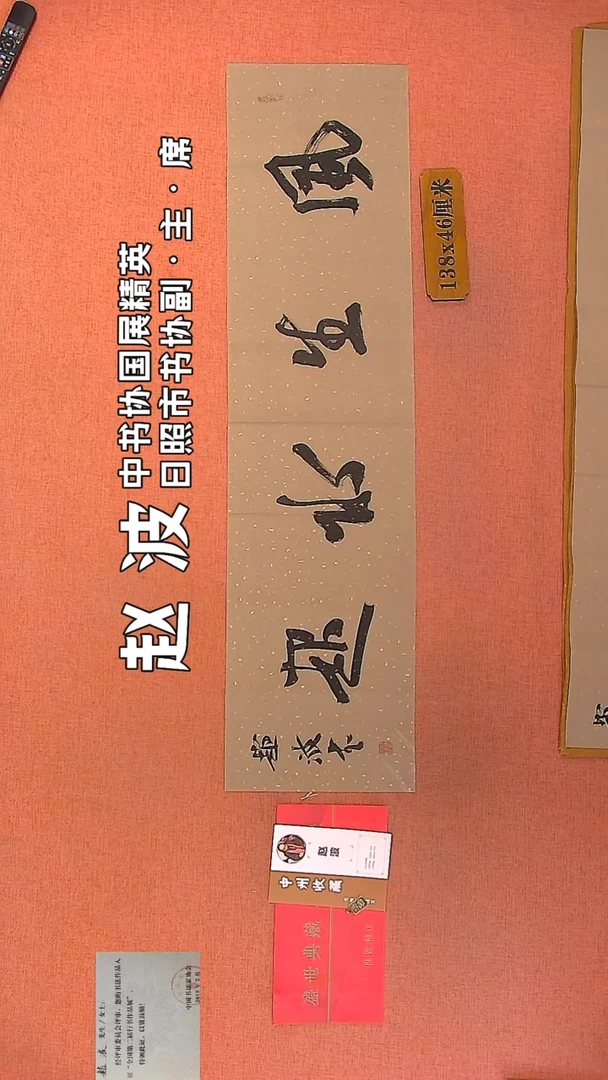 赵波
中书协国展精英
日照市书协副·主·席
風生水起
趙波书
138x46厘米
赵波
中州收藏
盛世典藏
赵波 先生/女士：
经评审委员会评审，您的书法作品入
展“全国第二届行书作品展”，
特颁此证，以资鼓励！
中国书法家协会